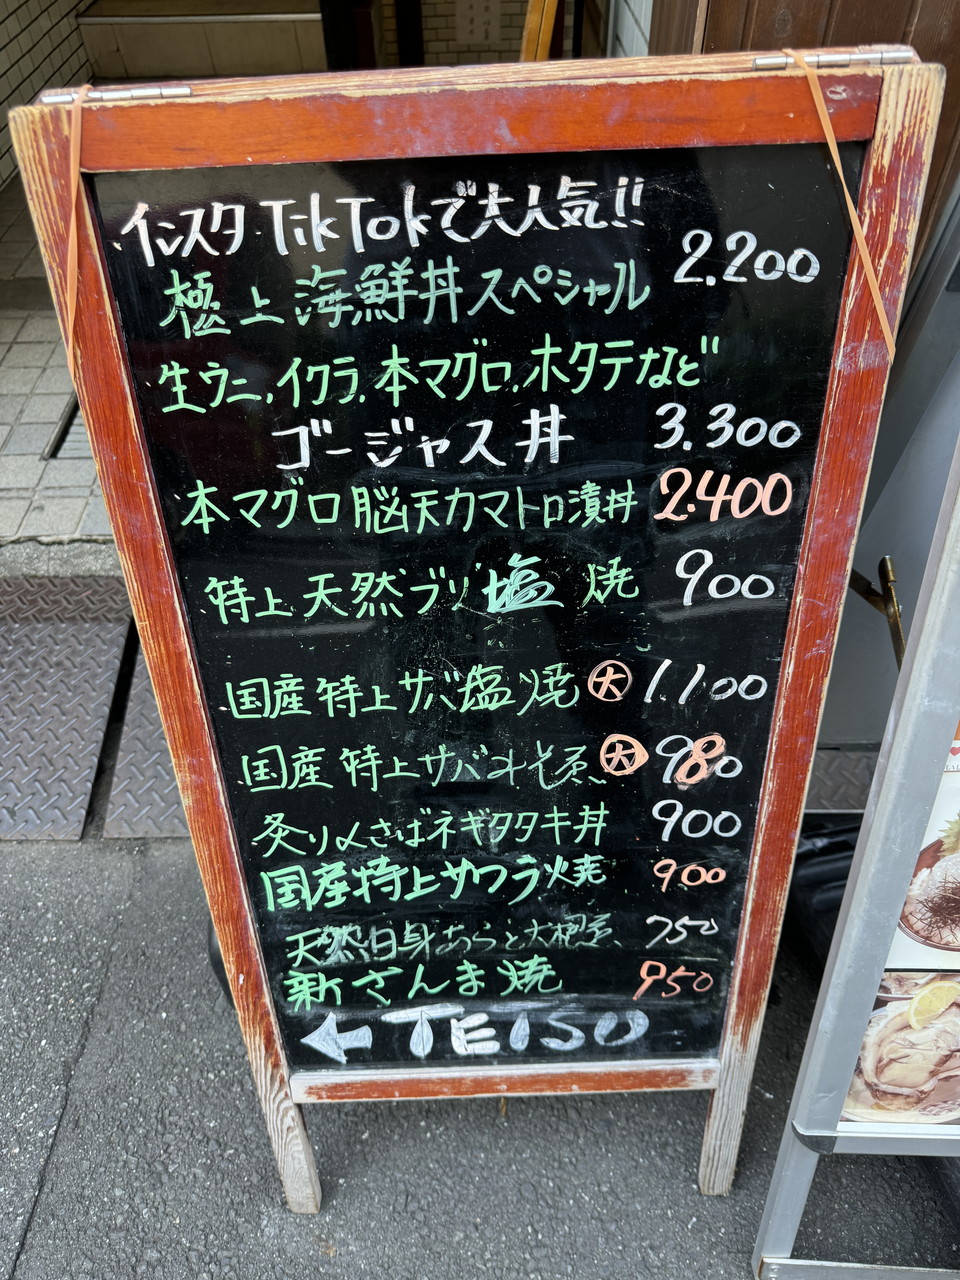 インスタTikTokで大人気!!
極上海鮮丼スペシャル 2.200
生ウニ.イクラ.本マグロ.ホタテなど
ゴージャス丼 3.300
本マグロ脳天カマトロ漬丼 2.400
特上天然ブリ塩焼 900
国産特上サバ塩焼 大 1.100
国産特上サバみそ煮 大 980
炙り〆さばネギタタキ丼 900
国産特上サワラ焼 900
天然白身あらと大根煮 750
新さんま焼 950
← TEISU